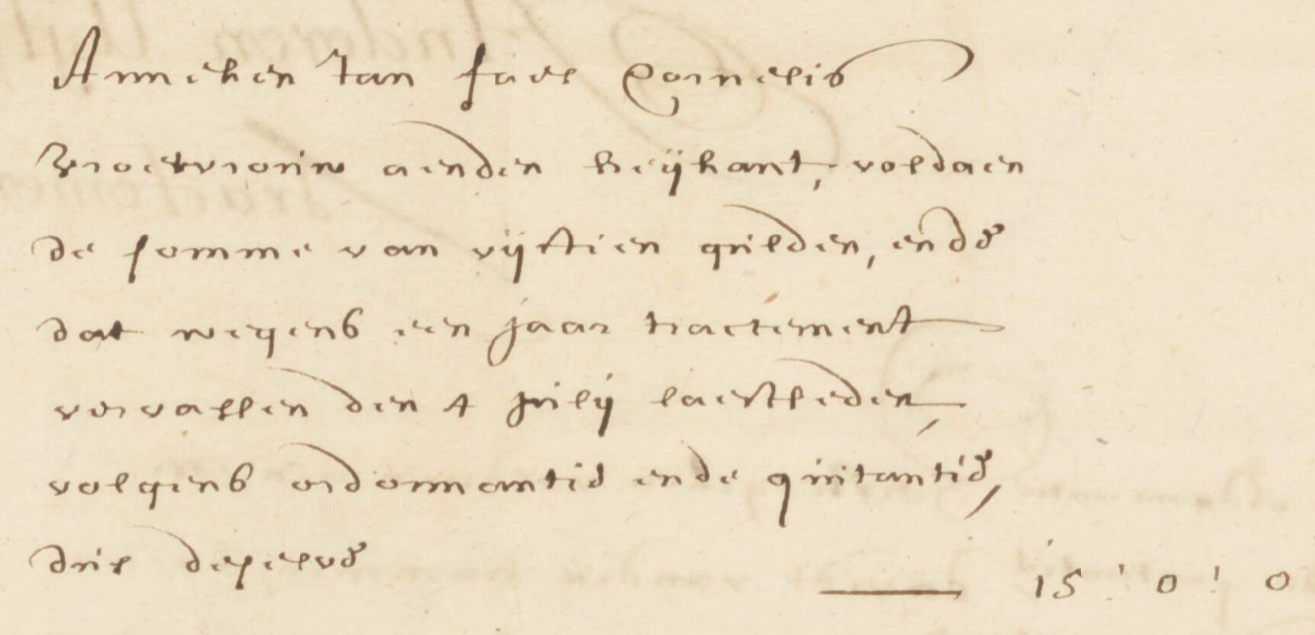 Anneken Jan Faes Cornelis
vroetvrouw aenden heijkant, voldaen
de somme van vijftien gulden, ende
dat wegens een jaar tractement
vervallen den 4 julij laestleden,
volgens ordonnantie ende quitantie,
dus deselve 15 " 0 " 0